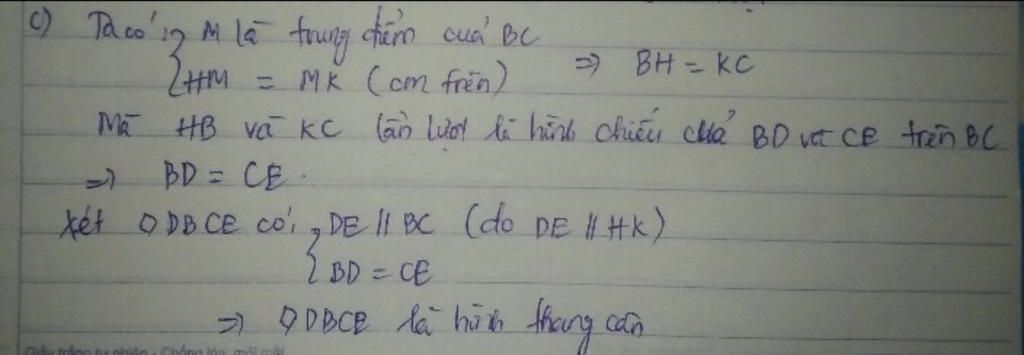 c) Ta có: { M là trung điểm của BC
{ HM = MK (cm trên) => BH = KC
Mà HB và KC lần lượt là hình chiếu của BD và CE trên BC
=> BD = CE.
Xét ◊DBCE có: { DE // BC (do DE // HK)
{ BD = CE
=> ◊DBCE là hình thang cân
Giấy trắng tự nhiên - Chống lóa, mỏi mắt